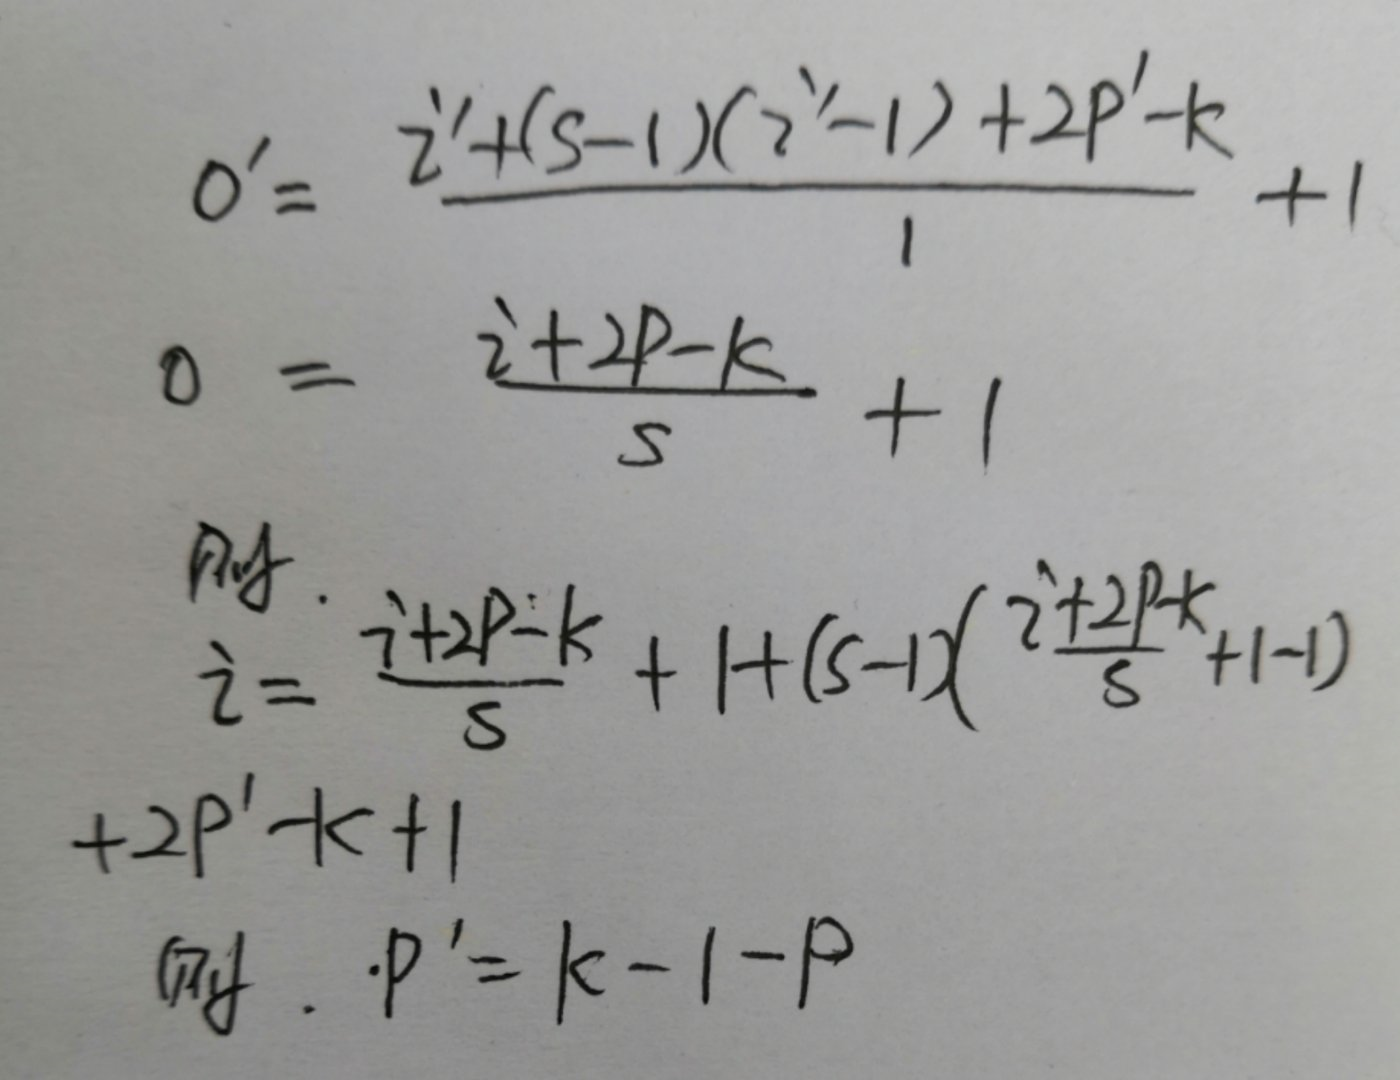 o' = \frac{i'+(s-1)(i'-1)+2p'-k}{1} +1
o = \frac{i+2p-k}{s} +1
则.
i = \frac{i+2p-k}{s} +1+(s-1)(\frac{i+2p-k}{s}+1-1)
+2p'-k+1
则. p'=k-1-p